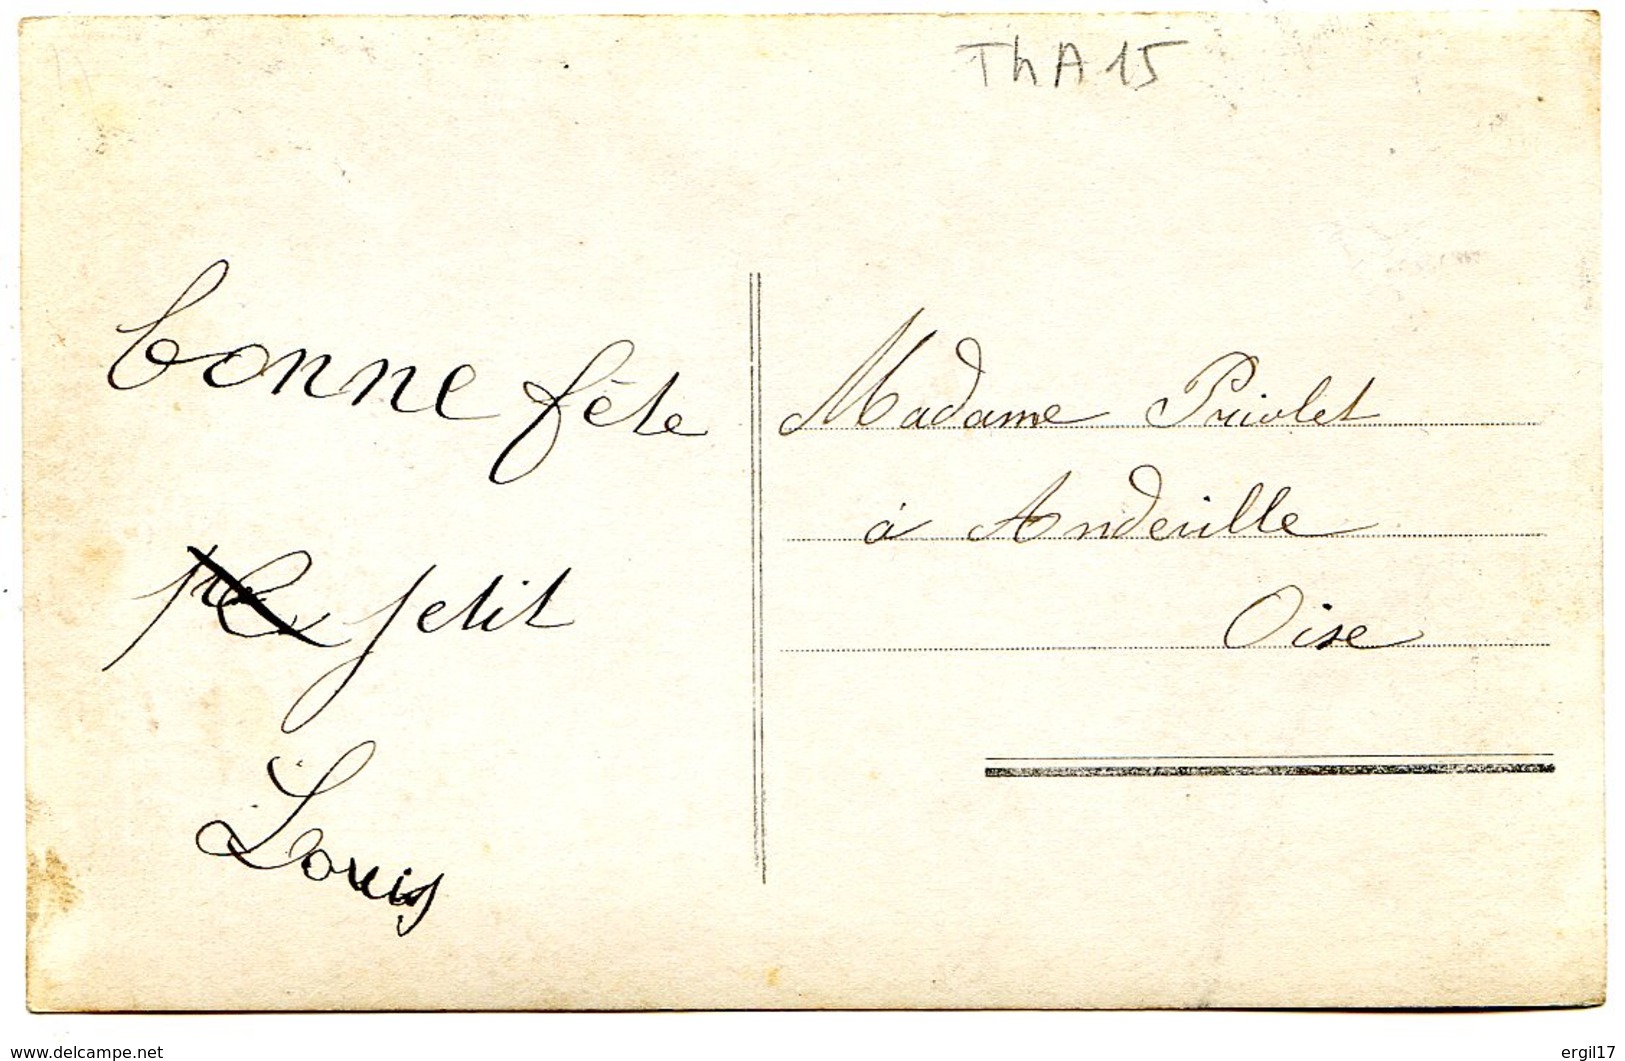 Th A 15
bonne fête
petit
Louis
Madame Priolet
à Andeville
Oise
www.delcampe.net
ergil17